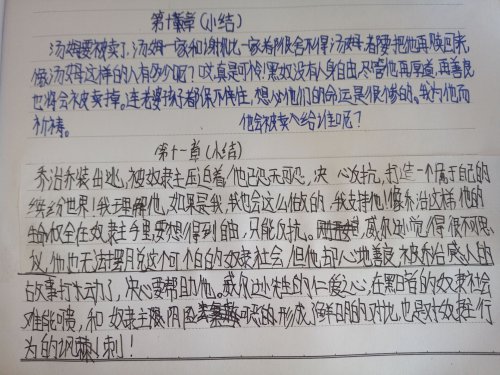 第十章(小结)
汤姆要被卖了,汤姆一家和谢比一家都很舍不得汤姆,都要把他再赎回来
像汤姆这样的人有多少呢?哎,真是可怜!黑奴没有人身自由,尽管他再厚道,再善良
也将会被卖掉。连老婆孩子都保不住,想必他们的命运是很惨的。我为他而
祈祷。 他会被卖入给谁呢?
第十一章(小结)
乔治乔装出逃,被奴隶主压迫着,他已忍无可忍,决心反抗,打造一个属于自己的
缤纷世界!我理解他,如果是我,我也会这么做的,我支持他!像乔治这样,他的
生命权全在奴隶主手里,要想得到自由,只能反抗。威尔出觉得很不可思
议,他也无法摆脱这个可个白的奴隶社会,但他却心地善良,被乔治感人的
故事打动了,决心要帮助他。威尔出生的仁爱之心,在黑暗的奴隶社会
难能可贵,和奴隶主限阴囱可恶的形成了鲜明的对比,也是对奴隶主行
为的讽刺!